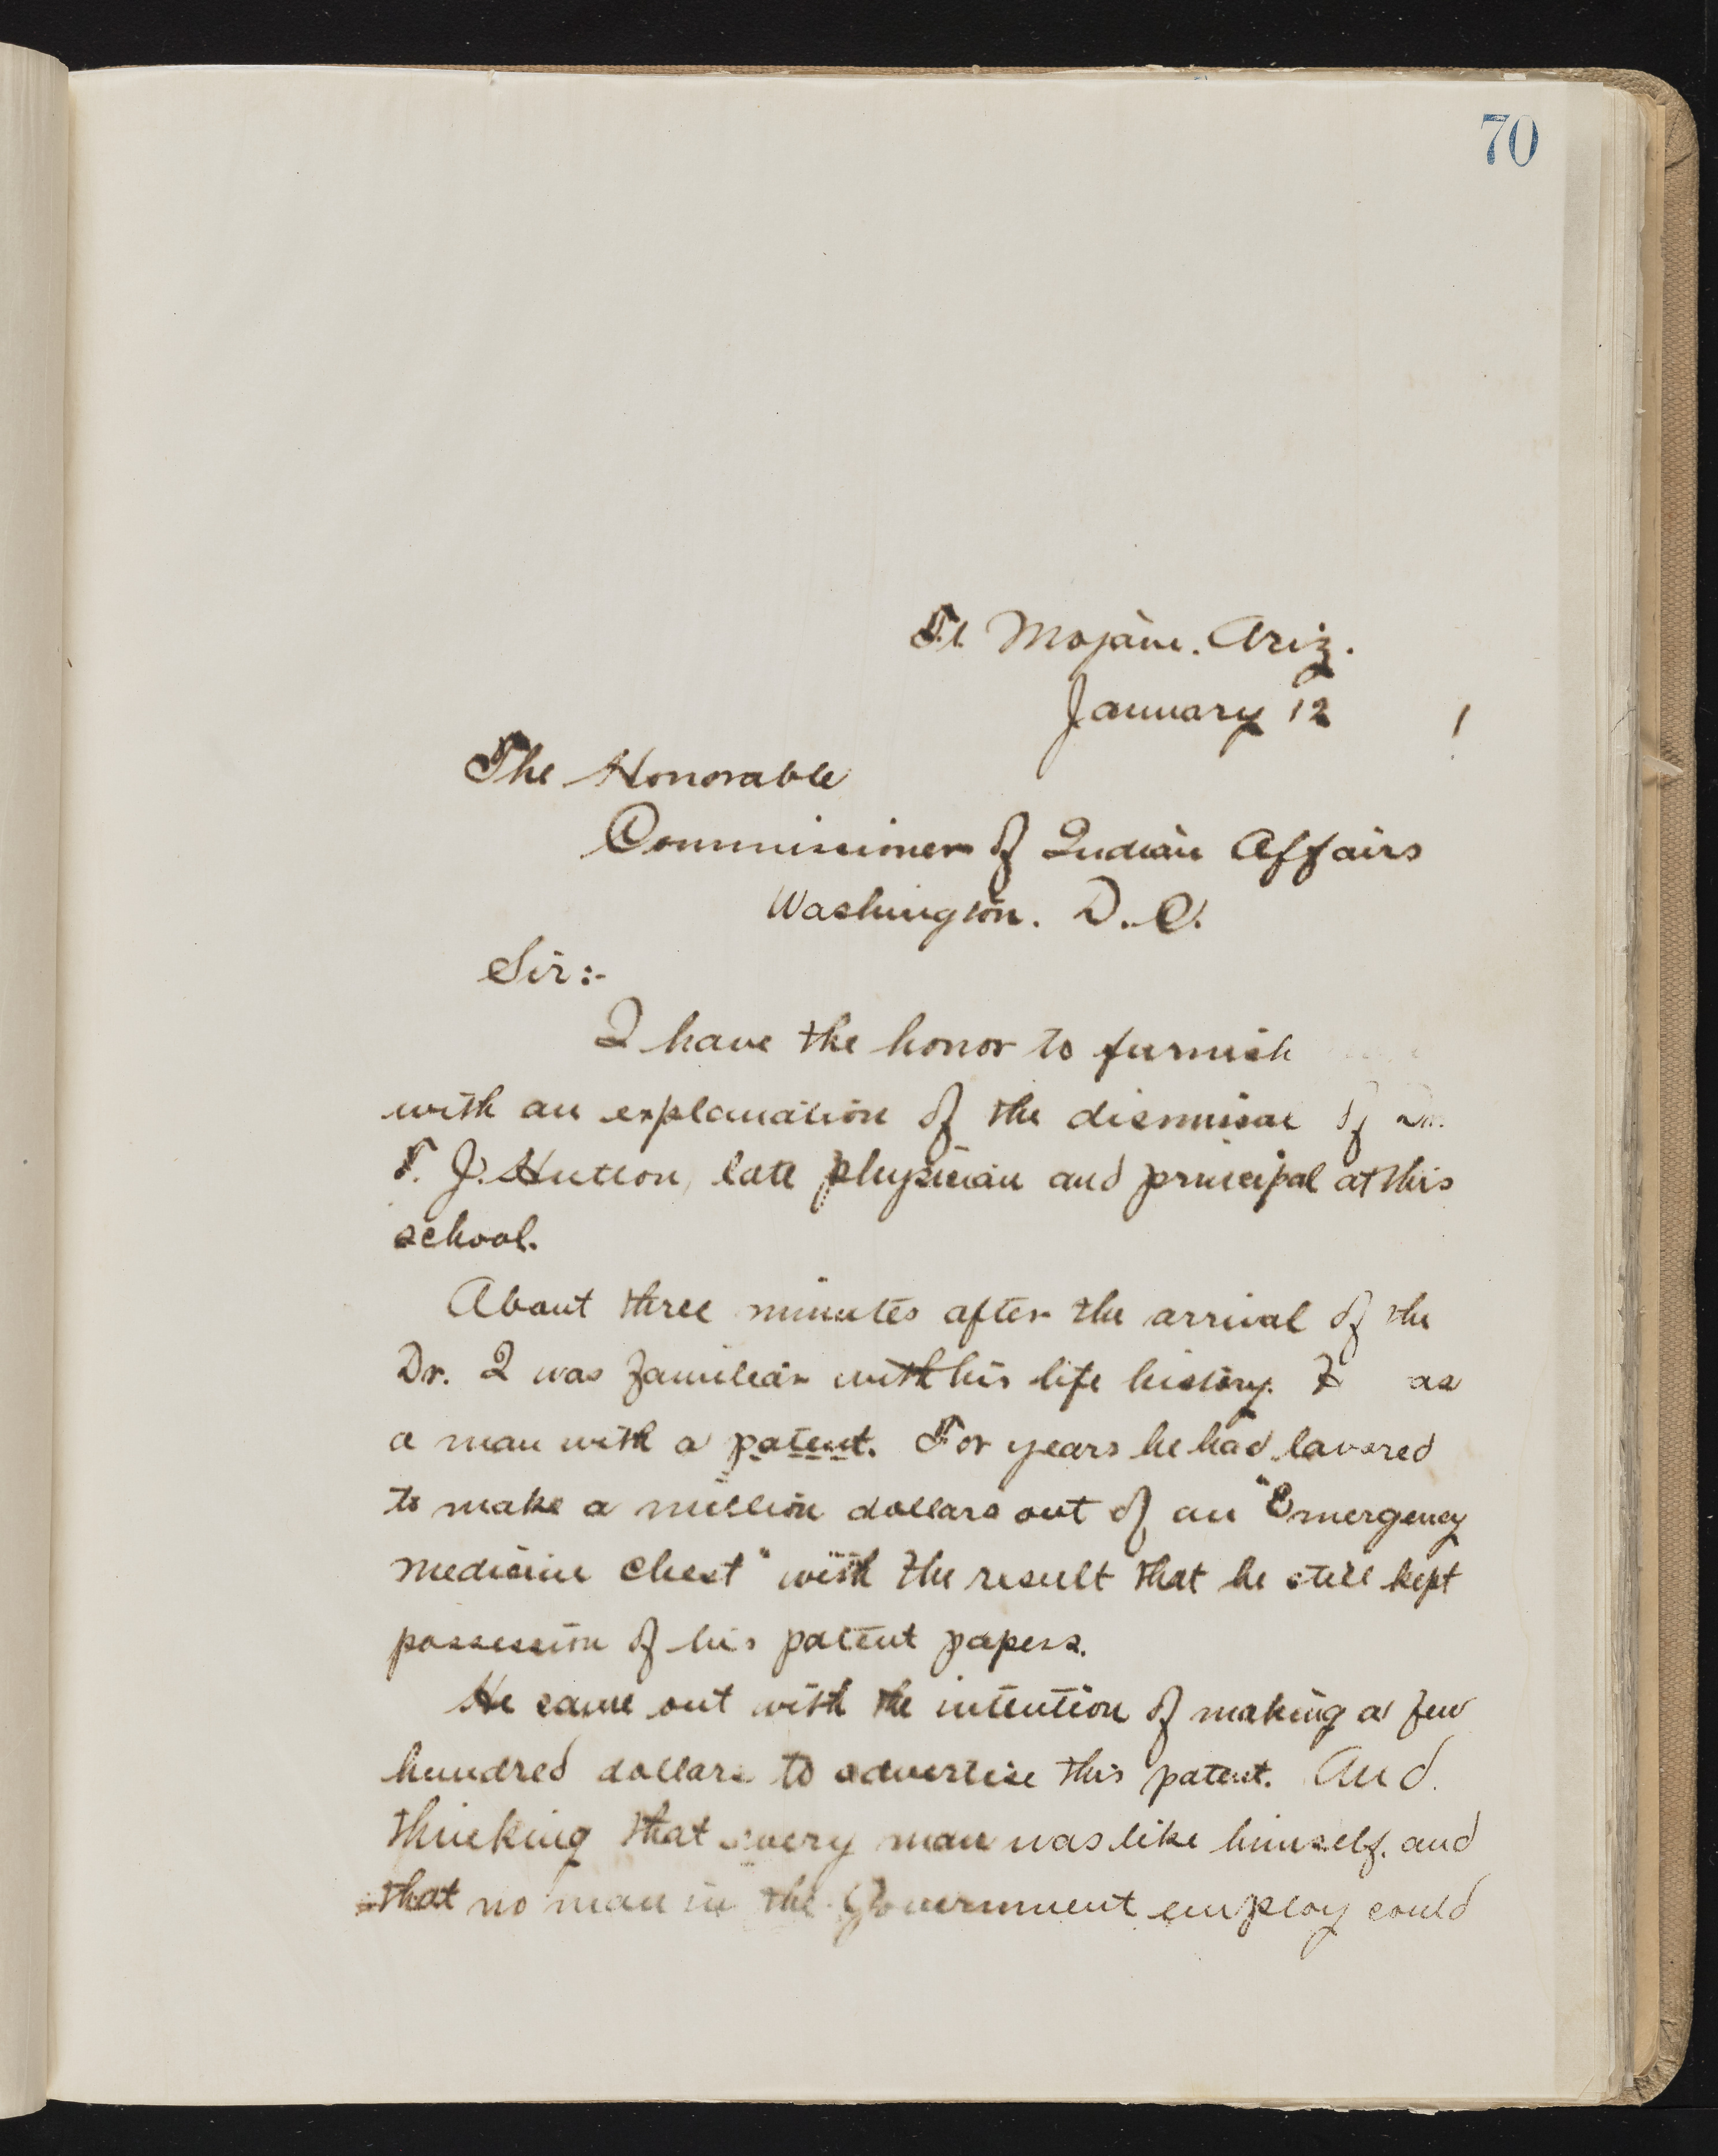 70
Ft. Mojave. Ariz.
January 12
The Honorable
Commissioner of Indian Affairs
Washington. D.C.
Sir:-
I have the honor to furnish
with an explanation of the dismissal of Dr.
T. J. Hutton, late physician and principal at this
school.
About three minutes after the arrival of the
Dr. I was familiar with his life history. as
a man with a patent. For years he had labored
to make a million dollars out of an "Emergency
medicine chest" with the result that he still kept
possession of his patent papers.
He came out with the intention of making a few
hundred dollars to advertise this patent. And
thinking that every man was like himself, and
that no man in the Government employ could